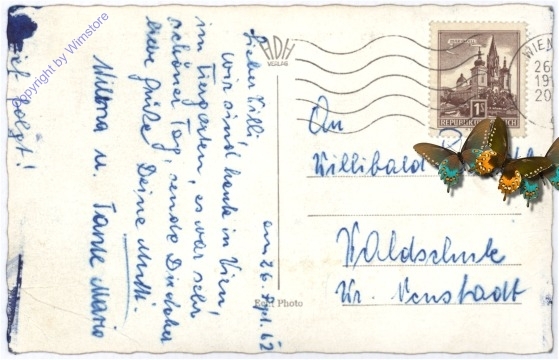 Copyright by Wimstore
ADH
VERLAG
am 26. Sept. 62
Lieber Willi
wir sind heute in Wien,
im Tiergarten, es war sehr
schöner Tag, sende Dir lieber
liebe Grüße Deine Mutti.
u. Tante Mario
folgt!
Echt Photo
WIEN
26
19
20
1S
REPUBLIK ÖSTERREICH
An
Willibald
Waldschule
Wr. Neustadt